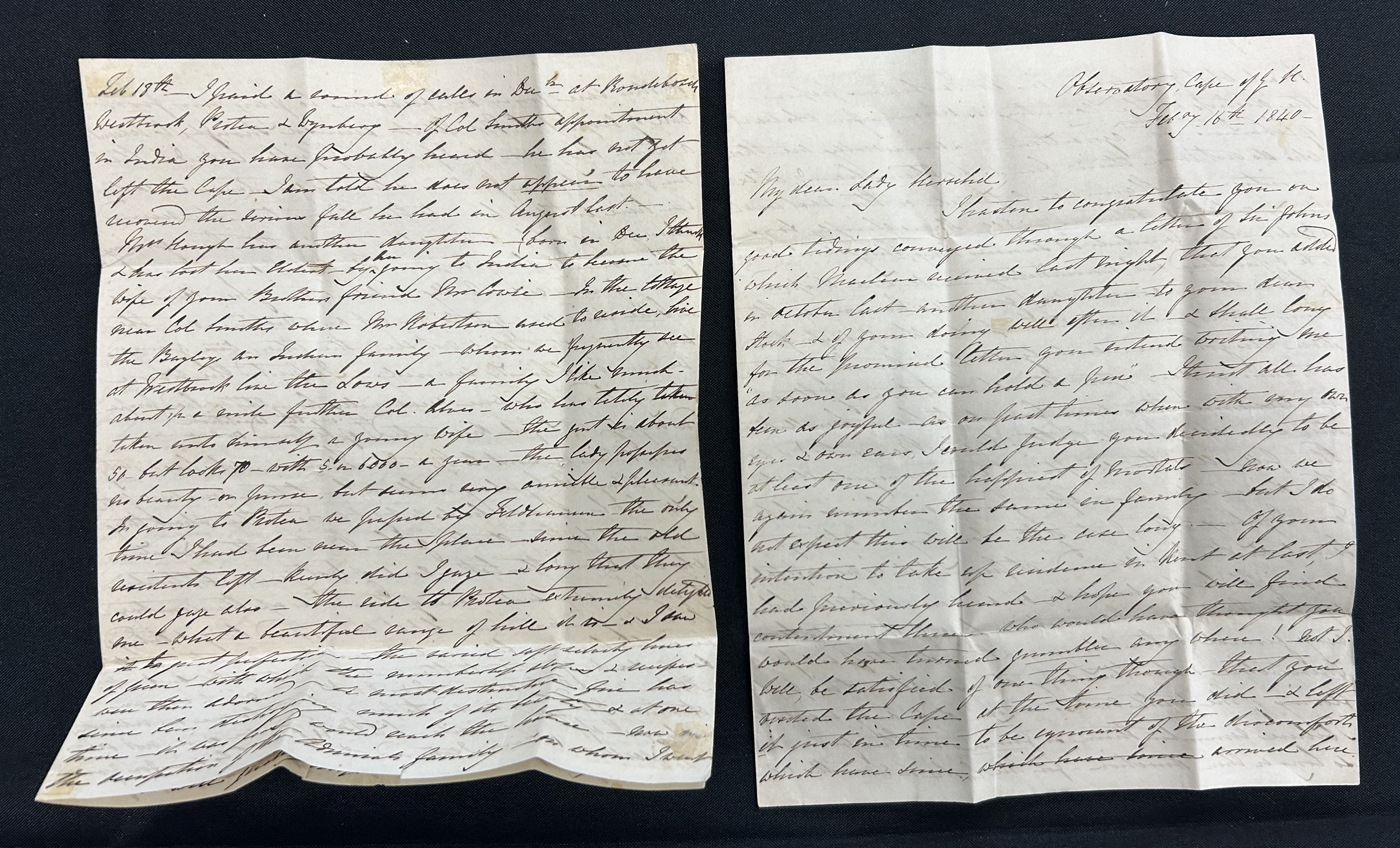 Feb 18th — I paid a round of calls in Decbr at Rondebosch
Westbrook, Protea & Wynberg — of Col Smiths appointment
in India you have probably heard — he has not yet
left the Cape. I am told he does not appear to have
recovered the serious fall he had in August last. —
Mrs Hough has another daughter — born in Dec I think
& has lost her eldest — by her going to India to become the
wife of your Brothers friend Mr Cowie — In the Cottage
near Col Smiths where Mrs Robertson used to reside, live
the Bayleys an Indian family — whom we frequently see
at Westbrook live the Lows — a family I like much —
about ½ a mile further Col. Alves — who has lately taken
taken unto himself a young wife — the gent is about
50 – but looks 70 – with 5 or 6000 – a year — the lady possesses
no beauty or purse, but seems very amiable & pleasant.
In going to Protea we passed by Feldhausen the only
time I had been near the place — since the old
residents left — keenly did I gaze — & long that they
could gaze also — the ride to Protea extremely delighted
me — what a beautiful range of hill it is — I saw
it in great perfection — the varied soft velvety hues
of green – with which the
over then adorned – most destructive fire has
since been much of its & at one
time it was reach the house — now in
the occupation of family — whom I
Observatory, Cape of G. H.
Feby 16th 1840 –
My dear Lady Herschel
I hasten to congratulate you on
good tidings conveyed through a letter of Sir Johns
which Maclear received last night, that you added
in October last – another daughter to your dear
flock – & of your doing well after it – & shall long
for the promised "letter you intend writing me
"as soon as you can hold a pen" — I trust all has
been as joyful – as on past times when with my own
eyes & own ears, I could judge you decidedly to be
at least one of the happiest of mortals — now we
again number the same in family — but I do
not expect this will be the case long. — Of your
intention to take up residence in Kent at last, I
had previously heard — & hope you will find
contentment there — who would have thought you
would have turned grumbler any where! but I
will be satisfied of one thing through — that you
visited the Cape at the time you did — & left
it just in time to be ignorant of the discomforts
which have since, which have since arrived here